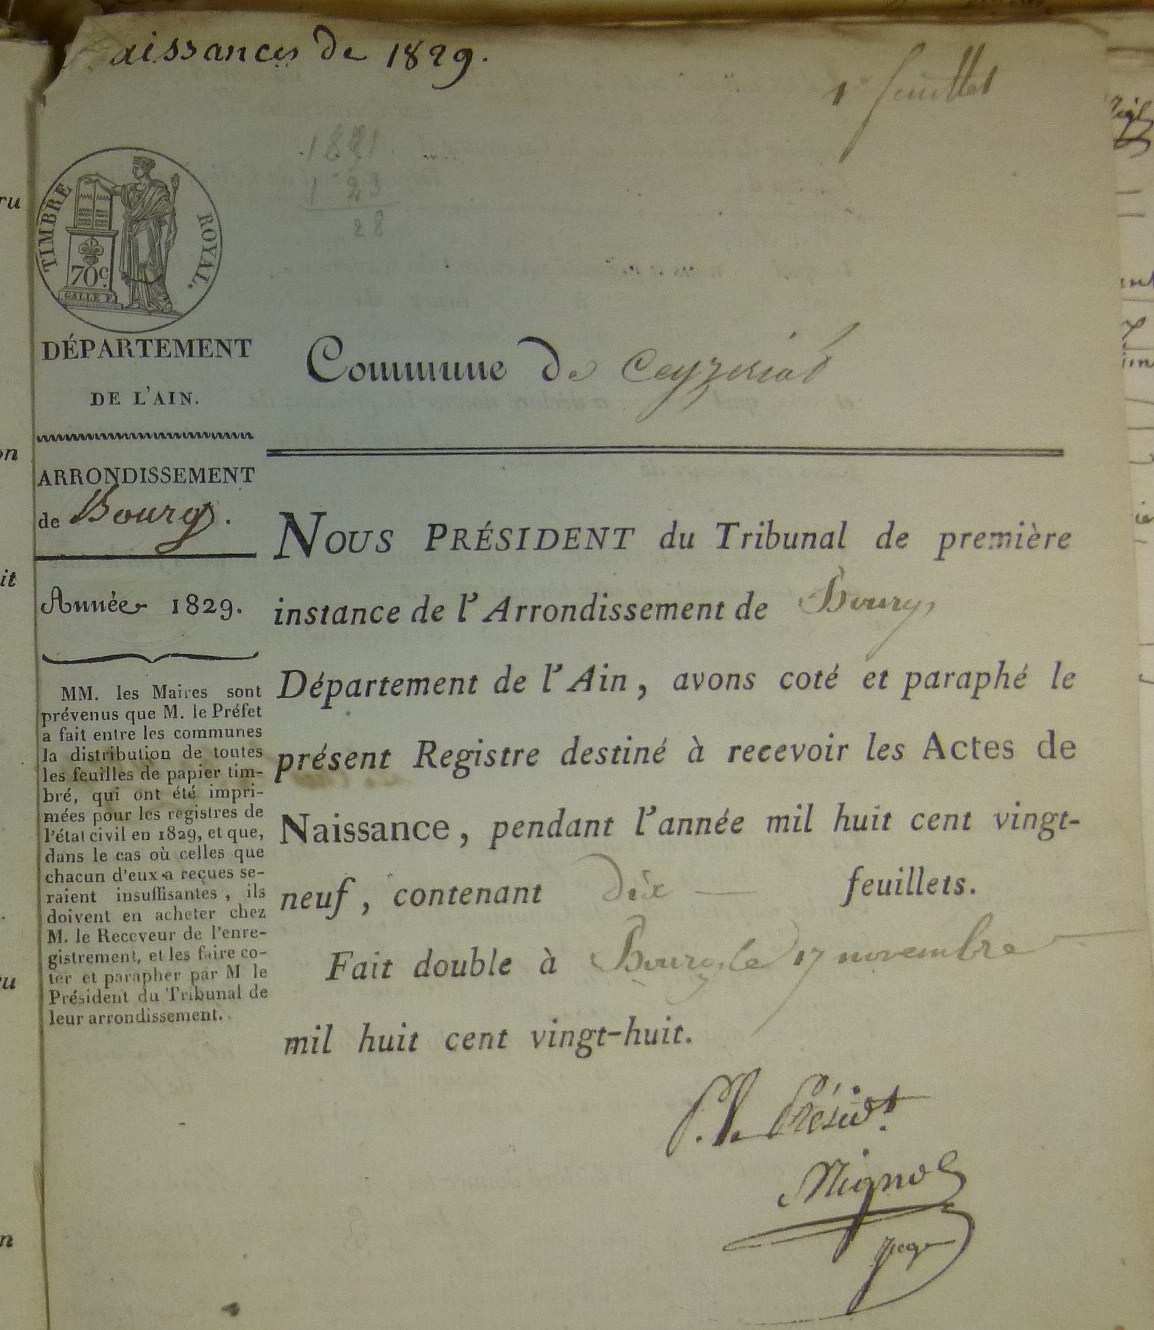 Naissances de 1829.
1er feuillet
1821
1 23
28
TIMBRE ROYAL.
70c.
GALLE F.
DÉPARTEMENT
DE L'AIN.
ARRONDISSEMENT
de Bourg.
Année 1829.
MM. les Maires sont
prévenus que M. le Préfet
a fait entre les communes
la distribution de toutes
les feuilles de papier tim-
bré, qui ont été impri-
mées pour les registres de
l'état civil en 1829, et que,
dans le cas où celles que
chacun d'eux a reçues se-
raient insuffisantes, ils
doivent en acheter chez
M. le Receveur de l'enre-
gistrement, et les faire co-
ter et parapher par M le
Président du Tribunal de
leur arrondissement.
Commune de Ceyzeriat
NOUS PRÉSIDENT du Tribunal de première
instance de l'Arrondissement de Bourg,
Département de l'Ain, avons coté et paraphé le
présent Registre destiné à recevoir les Actes de
Naissance, pendant l'année mil huit cent vingt-
neuf, contenant dix — feuillets.
Fait double à Bourg, le 17 novembre
mil huit cent vingt-huit.
P. le Présidt.
Mignot